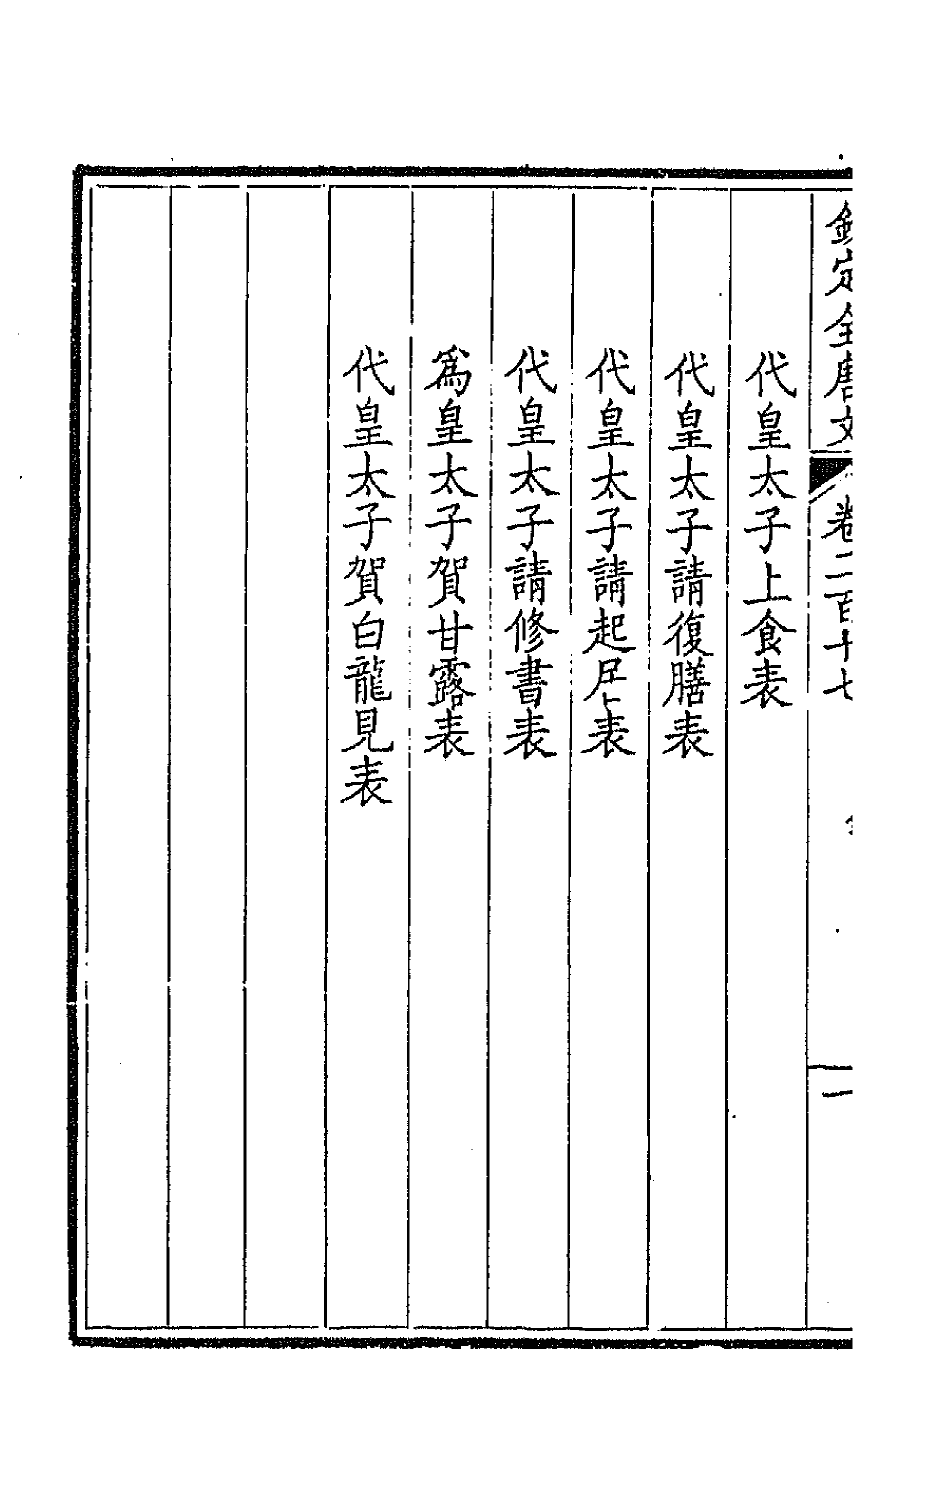 欽定全唐文 卷二百十七 一
代皇太子上食表
代皇太子請復膳表
代皇太子請起居表
代皇太子請修書表
爲皇太子賀甘露表
代皇太子賀白龍見表